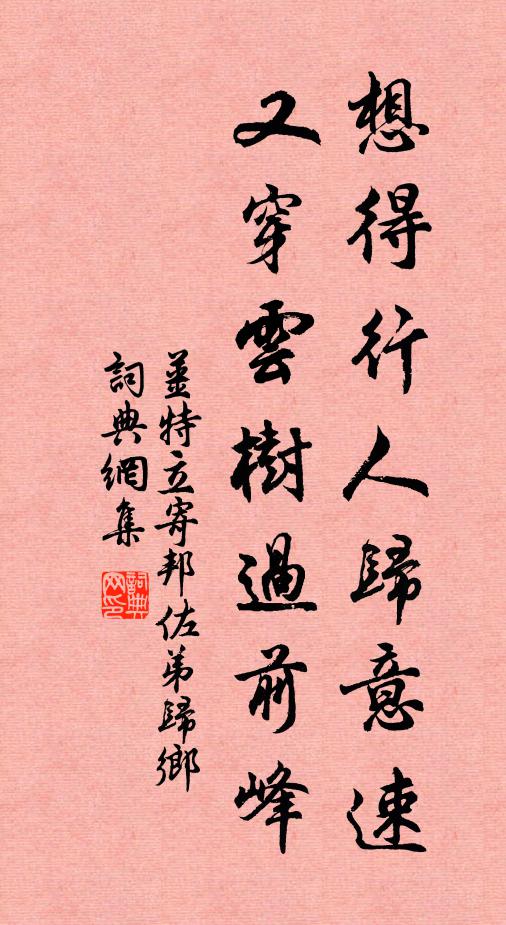 想得行人歸意速
又穿雲樹過前峰
姜特立寄邦佐弟歸鄉
詞典網集
詞典网印